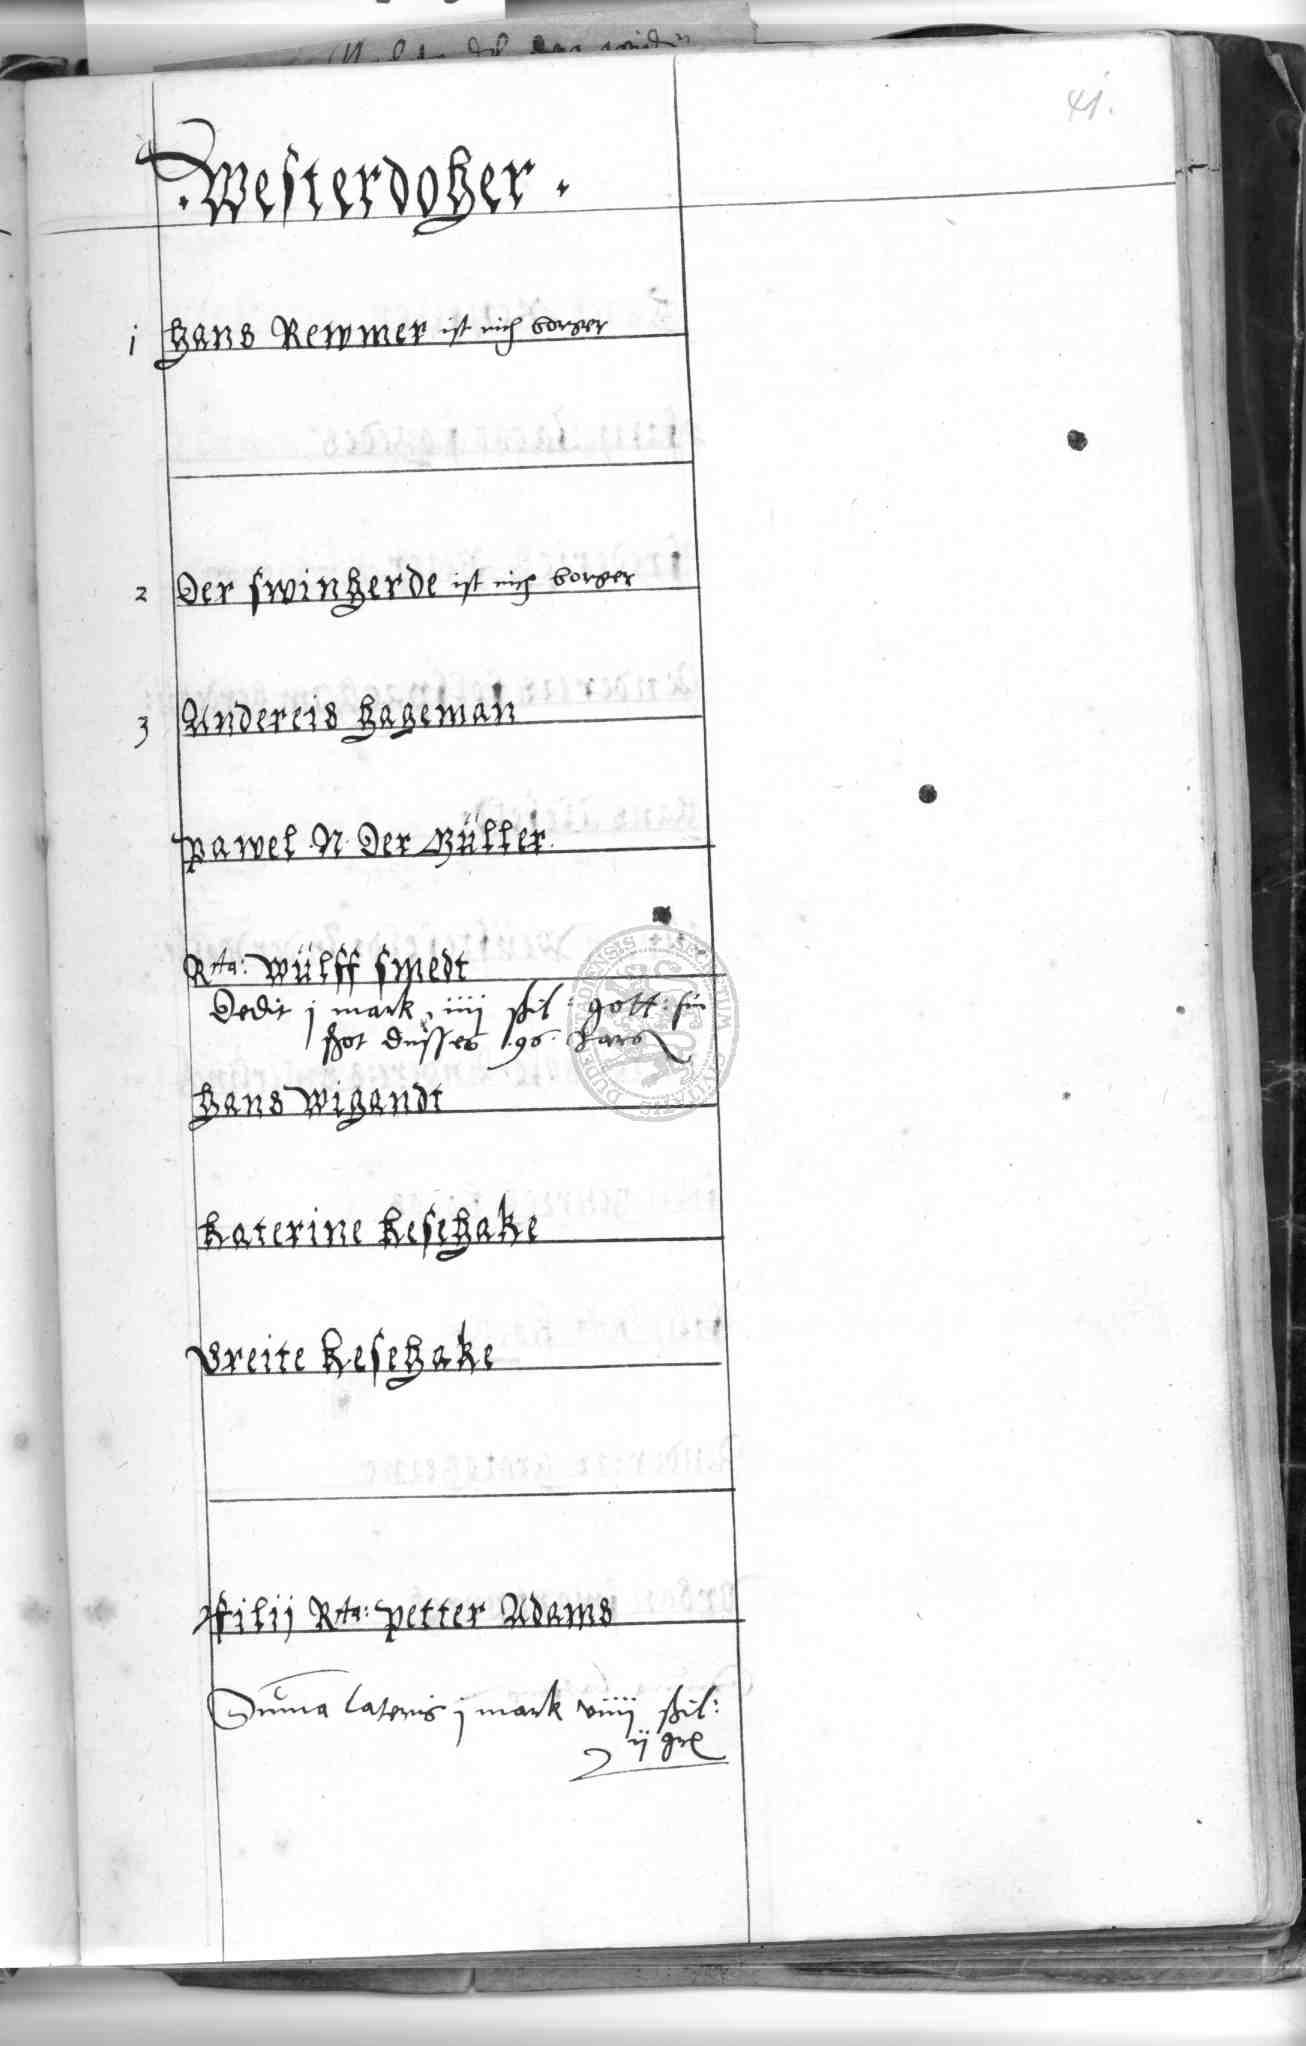 41.
. Westerdoher .
1 Hans Rewmer ist nich borger
2 Der swinherde ist nich borger
3 Andereis Hageman
Pawel N Der Müller
Rta: Wülff Smedt
Dedit j mark iiij ßil: gott: sin
schot dusses 96 Jars
Hans Wigandt
Katerine Kesehake
Greite Kesehake
Filij Rta: Petter Adams
Suma lateris j mark viiij ßil:
ij gr